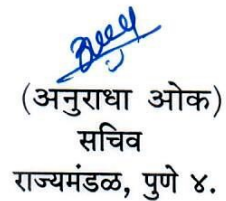 (अनुराधा ओक)
सचिव
राज्यमंडळ, पुणे ४.